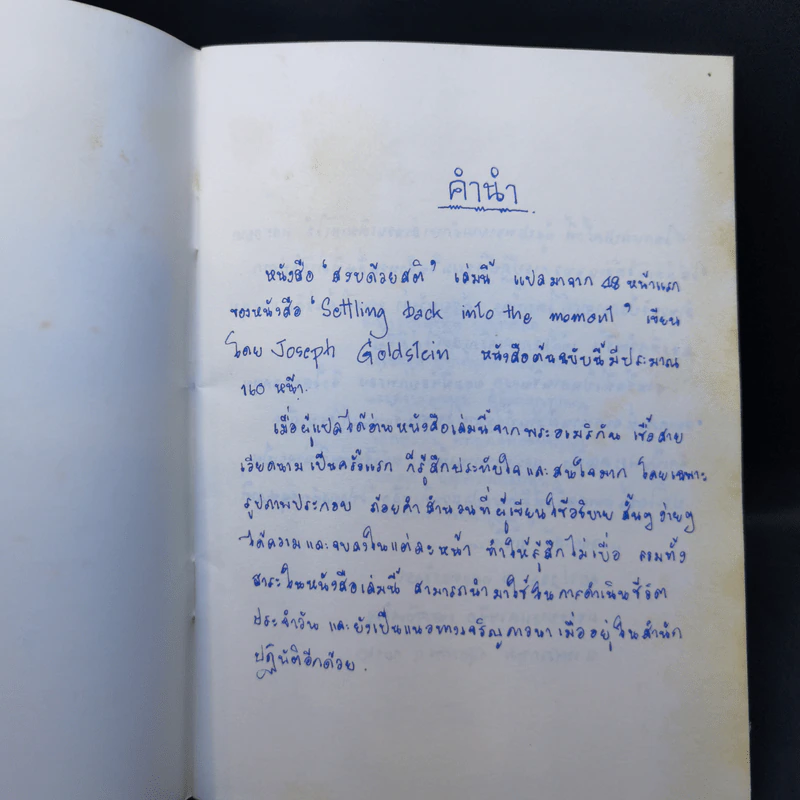 คำนำ
หนังสือ 'สงบด้วยสติ' เล่มนี้ แปลมาจาก 48 หน้าแรก
ของหนังสือ 'Settling back into the moment' เขียน
โดย Joseph Goldstein หนังสือต้นฉบับนี้มีประมาณ
160 หน้า.
เมื่อผู้แปลได้อ่านหนังสือเล่มนี้จากพระอเมริกัน เชื้อสาย
เวียดนาม เป็นครั้งแรก ก็รู้สึกประทับใจและสนใจมาก โดยเฉพาะ
รูปภาพประกอบ ถ้อยคำ สำนวนที่ผู้เขียนใช้อธิบาย สั้นๆ ง่ายๆ
ได้ความและจบลงในแต่ละหน้า ทำให้รู้สึกไม่เบื่อ รวมทั้ง
สาระในหนังสือเล่มนี้ สามารถนำมาใช้ในการดำเนินชีวิต
ประจำวัน และยังเป็นแนวทางเจริญภาวนา เมื่ออยู่ในสำนัก
ปฏิบัติอีกด้วย.